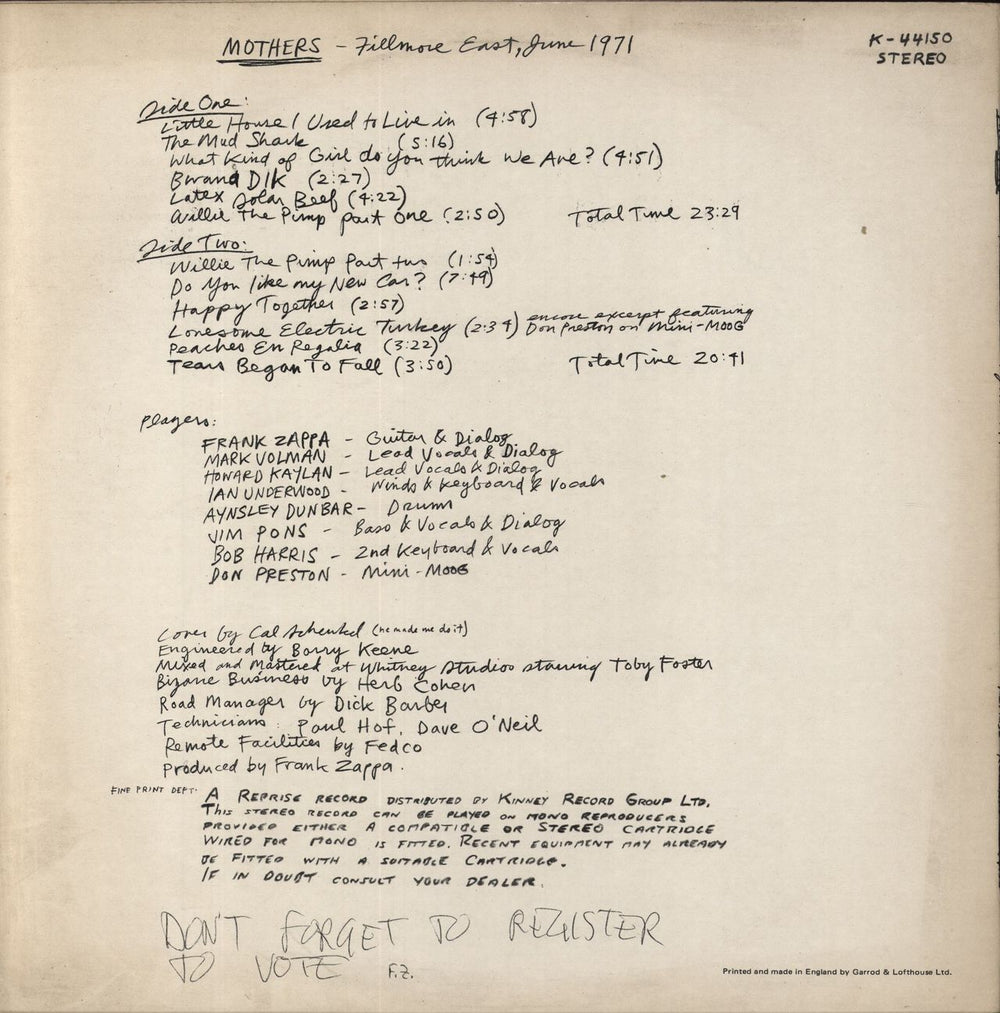 MOTHERS - Fillmore East, June 1971
K-44150
STEREO
Side One:
Little House I Used to Live in (4:58)
The Mud Shark (5:16)
What Kind of Girl do you think We Are? (4:51)
Bwana DIK (2:27)
Latex Solar Beef (4:22)
Willie The Pimp part One (2:50) Total Time 23:29
Side Two:
Willie The Pimp Part two (1:54)
Do You like my New Car? (7:49)
Happy Together (2:57)
Lonesome Electric Turkey (2:34) encore excerpt featuring
Don Preston on Mini-MOOG
Peaches En Regalia (3:22)
Tears Began To Fall (3:50) Total Time 20:41
Players:
FRANK ZAPPA - Guitar & Dialog
MARK VOLMAN - Lead Vocals & Dialog
HOWARD KAYLAN - Lead Vocals & Dialog
IAN UNDERWOOD - Winds & Keyboard & Vocals
AYNSLEY DUNBAR - Drums
JIM PONS - Bass & Vocals & Dialog
BOB HARRIS - 2nd Keyboard & Vocals
DON PRESTON - Mini-MOOG
Cover by Cal Schenkel (he made me do it)
Engineered by Barry Keene
Mixed and Mastered at Whitney Studios starring Toby Foster
Bizarre Business by Herb Cohen
Road Manager by Dick Barber
Technicians: Paul Hof, Dave O'Neil
Remote Facilities by Fedco
Produced by Frank Zappa.
FINE PRINT DEPT. A REPRISE RECORD DISTRIBUTED BY KINNEY RECORD GROUP LTD.
THIS STEREO RECORD CAN BE PLAYED ON MONO REPRODUCERS
PROVIDED EITHER A COMPATIBLE OR STEREO CARTRIDGE
WIRED FOR MONO IS FITTED. RECENT EQUIPMENT MAY ALREADY
BE FITTED WITH A SUITABLE CARTRIDGE.
IF IN DOUBT CONSULT YOUR DEALER.
DON'T FORGET TO REGISTER
TO VOTE F.Z.
Printed and made in England by Garrod & Lofthouse Ltd.